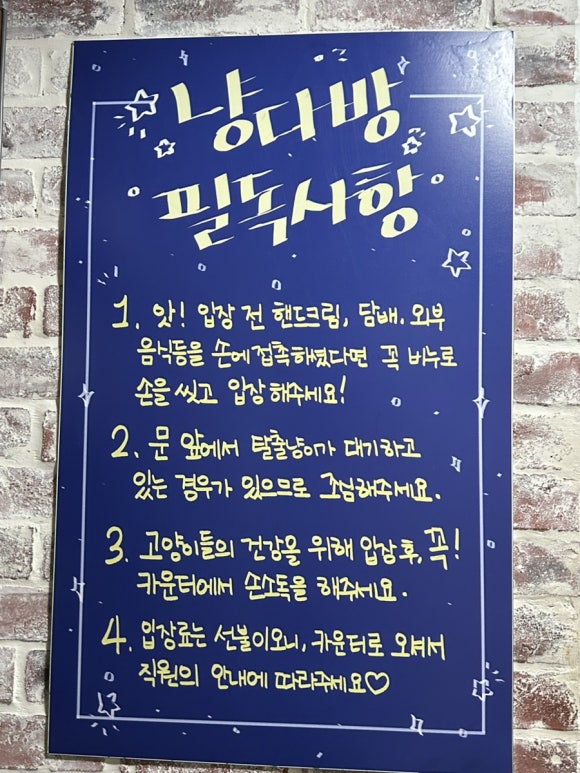 냥다방
필독사항
1. 앗! 입장 전 핸드크림, 담배, 외부
음식등을 손에 접촉하셨다면 꼭 비누로
손을 씻고 입장해주세요!
2. 문 앞에서 탈출냥이가 대기하고
있는 경우가 있으므로 조심해주세요.
3. 고양이들의 건강을 위해 입장 후, 꼭!
카운터에서 손소독을 해주세요.
4. 입장료는 선불이오니, 카운터로 오셔서
직원의 안내에 따라주세요♡